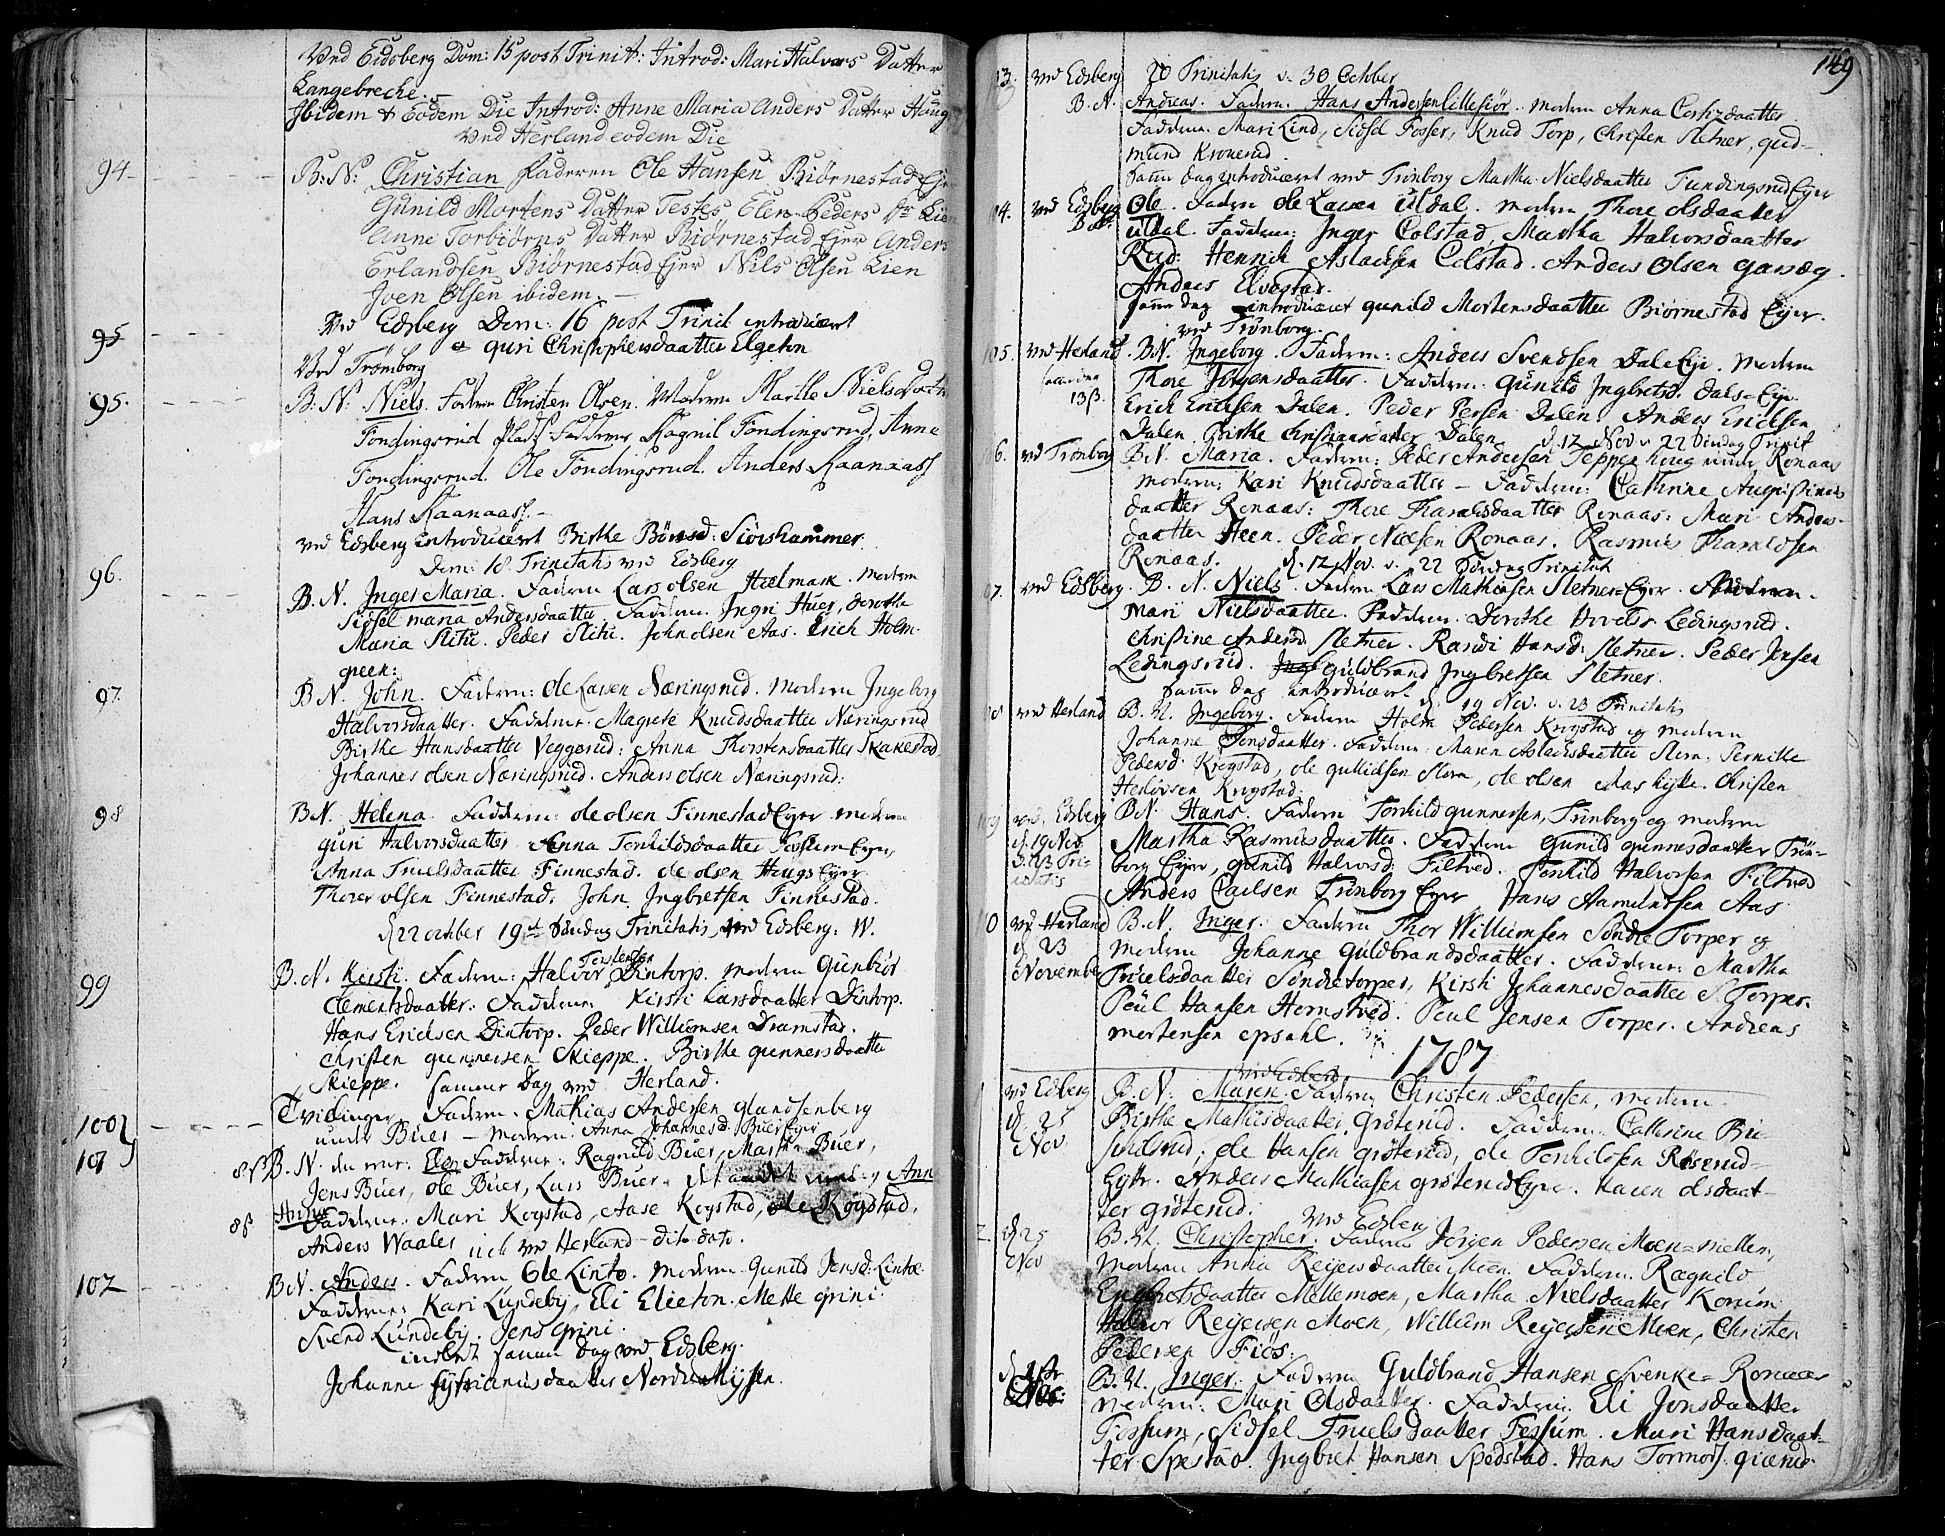 Ved Eidsberg Dom: 15 post Trinit: Introd: Mari Halvors Datter
Langebreche.
Ibidem & Eodem Die Introd: Anne Maria Anders Datter Haug
Ved Herland eodem Die
94 B: N: Christian Faderen Ole Hansen Biørnestad Ejer
Gunild Mortens Datter Testes, Elen Peders Dr Lien
Anne Torbiørns Datter Biørnestad Ejer Anders
Erlandsen Biørnestad Ejer Nils Olsen Lien
Joen Olsen ibidem.
95 Ved Edsberg Dom: 16 post Trinit introduceret
guri Christophersdaatter Elgeton
Ved Trømborg
95. B: N: Niels. Faderen Christen Olsen. Moderen Marthe Nielsdatter
Fondingsrud Plads Faddere Ragnil Fondingsrud, Anne
Fondingsrud. Ole Fondingsrud. Anders Raanaass
Hans Raanaass.
ved Edsberg introduceret Birthe Børsd: Siørshammer.
Dom: 18 Trinitatis ved Edsberg
96. B. N. Inger Maria. Faderen Lars olsen Hielmark. Moderen
Sidsel maria Andersdaatter Faddere. Ingri Huer, dorothe
Maria Slitu. Peder Slitu. John olsen Aas. Erich Holm-
green:
97. B. N. John. Faderen: ole Larsen Næringsrud. Moderen Ingeborg
Halvorsdaatter. Fadderne. Magrete Knudsdaatter Næringsrud
Birthe Hansdaatter Veggerud: Anna Thorstensdaatter Skakestad
Johannes olsen Næringsrud. Anders olsen Næringsrud:
98 B. N. Helena. Faderen: ole olsen Finnestad Ejer moderen
guri Halvorsdaatter Anna Torkildsdaatter Fossum Ejer,
Anna Truelsdaatter Finnestad. ole olsen Hougs Ejer
Thorer olsen Finnestad. John Ingbretsen Finnestad.
d. 22 october 19de Søndag Trinitatis, ved Edsberg: W.
Torstensen
99 B. N. Kirsti. Faderen: Halvor Dintorp. moderen Gunbiør
Clementsdaatter: Fadderne Kirsti Larsdaatter Dintorp.
Hans Ericksen Dintorp. Peder Willumsen Dramstad.
Christen gunnersen Skieppe. Birthe gunnersdaatter
Skieppe. samme Dag ved Herland.
100 Tvillinger Faderen. Mathias Andersen glandsenberg
under Buer – moderen: Anna Johannesd. Buer Ejer
101 B. N. den ene: Elen Fadderne: Ragnild Buer, Marthe Buer,
Jens Buer, ole Buer, Lars Buer. det andet navn Anne
8 ß Fadderne: Mari Kogstad, Aase Kogstad, ole Kogstad,
Anders Waaler ved Herland dito dato.
102 B. N. Anders. Faderen Ole Linto. Moderen Gunild Jensd: Lintoe
Fadderne: Kari Lundeby, Eli Elieton. Mette grini.
Svend Lundeby. Jens grini.
samme Dag ved Edsberg.
Johanne Cyprianusdaatter Nordre Mysen.
149
13. ved Edsberg 20 Trinitatis d. 30 October
B. N. Andreas. Faderen Hans Andersen Lillesiør. moderen Anna Carlsdaatter.
Fadderne. Mari Lind, Sidsel Fosser, Knud Torp, Christen Sletner, gud-
mund Kronerud.
samme dag introduceret ved Trønborg Martha Nielsdaatter Fundingsrud Ejer
14. ved Edsberg Ole. Faderen ole Larsen Udal. moderen Thore olsdaatter
Udal. Fadderne: Inger Colstad, Martha Halvorsdaatter
Rud: Henrich Aslachsen Colstad. Anders Olsen garseg.
Anders Elvestad.
samme dag introduceret gunild Mortensdaatter Biørnestad Ejer.
ved Trønborg.
105. ved Herland B. N. Ingeborg. Faderen: Anders Svendsen Dale Eje. moderen
Thore Jørgensdaatter. Fadderne: gunild Ingbretsd. Dals-Eje.
13 ß. Erich Erichsen Dalen. Peder Persen Dalen Anders Erichsen
Dalen. Birthe Christiansdatter Dalen. d. 12 Nov. 22 Søndag Trinit
6. ved Trønborg B. N. Maria. Faderen: Peder Andersen Teppen houg under Ronaas
moderen: Kari Knudsdaatter – Fadderne: Cathrine Augustinus
daatter Ronaas: Thore Tharaldsdaatter Ronaas: Mari Anders-
daatter Steen. Peder Nielsen Ronaas. Rasmus Tharaldsen
Ronaas. d. 12 Nov. 22 Søndag Trinitatis
07. ved Edsberg. B. N. Niels. Faderen Lars Mathiasen Sletner-Ejer. Moderen
Mari Nielsdaatter. Fadderne. Dorthe Ledingsrud.
Christine Andersd. Sletner. Randi Hansd: Sletner. Peder Jensen
Ledingsrud. guldbrand Ingbretsen Sletner.
samme dag introduceret d. 19 Nov. 23 Trinitatis
8 ved Herland B. N. Ingeborg. Faderen Holm Pedersen Krogstad og moderen
Johanne Jensdaatter. Fadderne. Maren Aslachsdaatter Slorn. Pernille
Pedersd. Krogstad, ole gulliksen Slorn, ole olsen Christen
Krogstad.
109 ved Edsberg B. N. Hans. Faderen Torkild gunnersen, Trønborg og moderen
d. 19 Nov Martha Rasmusdaatter. Fadderne Gunild gunnersdaatter Trøn-
borg Ejer, gunild Halvorsd. Filtved. Torkild Halvorsen Filtved
Anders Carlsen Trønborg Ejer Hans Aamundsen Aas
0 ved Herland B. N. Inger. Faderen Thor Williumsen Søndre Torper og
d. 23 moderen Johanne Guldbrandsdaatter. Fadderne: Martha
November Truelsdaatter Søndretorper, Kirsti Johannesdaatter S. Torper.
Poul Hansen Homstved. Poul Jensen Torper. Andreas
mortensen epsahl.
1787
ved Edsberg
ved Edberg B. N. Maren. Faderen Christen Pedersen, moderen
d. 25 Birthe Mathisdaatter, Grøterud. Fadderne. Cathrine
Nov ole Hansen grøterud, ole Torkildsen Røserud-
Eye. Anders Mathiasen grøterud Ejer. Karen olsdaat-
ter grøterud. ved Edsberg
2. d. 25 B. N. Christopher. Faderen Jørgen Pedersen Moen-mellem,
Nov moderen Anna Reyersdaatter Moen. Fadderne. Ragnild
Engebretsdaatter Mellemoen, Martha Nielsdaatter Korum
Halvor Reyersen Moen, Willum Reyersen Moen, Christen
Pedersen Fiøs.
B. N. Inger. Faderen Guldbrand Hansen Svenke-Ronaas
moderen. Mari Olsdaatter. Fadderne. Eli Jonsdaatter
Fossum, Sidsel Truelsdaatter Fossum. Mari Hansdaat-
ter Spestad. Ingbret Hansen Spedstad. Hans Tormors.